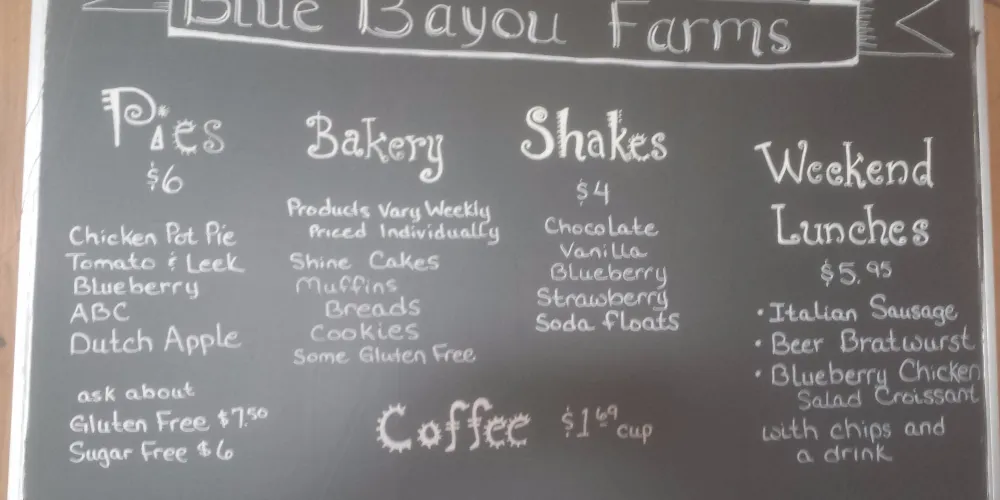 Blue Bayou Farms
Pies
$6
Chicken Pot Pie
Tomato & Leek
Blueberry
ABC
Dutch Apple
ask about
Gluten Free $7.50
Sugar Free $6
Bakery
Products Vary Weekly
Priced Individually
Shine Cakes
Muffins
Breads
Cookies
Some Gluten Free
Shakes
$4
Chocolate
Vanilla
Blueberry
Strawberry
Soda floats
Coffee $1.69 cup
Weekend
Lunches
$5.95
• Italian Sausage
• Beer Bratwurst
• Blueberry Chicken
Salad Croissant
with chips and
a drink